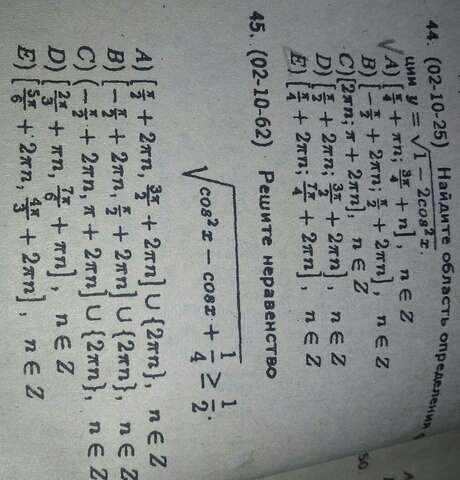 44. (02-10-25) Найдите область определения
ции y = √1 − 2cos²x.
A) [π/4 + πn; 3π/4 + n], n ∈ Z
B) [−π/2 + 2πn; π/2 + 2πn], n ∈ Z
C) [2πn; π + 2πn], n ∈ Z
D) [π/2 + 2πn; 3π/2 + 2πn], n ∈ Z
E) [π/4 + 2πn; 7π/4 + 2πn], n ∈ Z
45. (02-10-62) Решите неравенство
√cos²x − cosx + 1/4 ≥ 1/2.
A) [π/2 + 2πn, 3π/2 + 2πn] ∪ {2πn}, n ∈ Z
B) [−π/2 + 2πn, π/2 + 2πn] ∪ {2πn}, n ∈ Z
C) (−π/2 + 2πn, π + 2πn] ∪ {2πn}, n ∈ Z
D) [2π/3 + πn, 7π/6 + πn], n ∈ Z
E) [5π/6 + 2πn, 4π/3 + 2πn], n ∈ Z
50